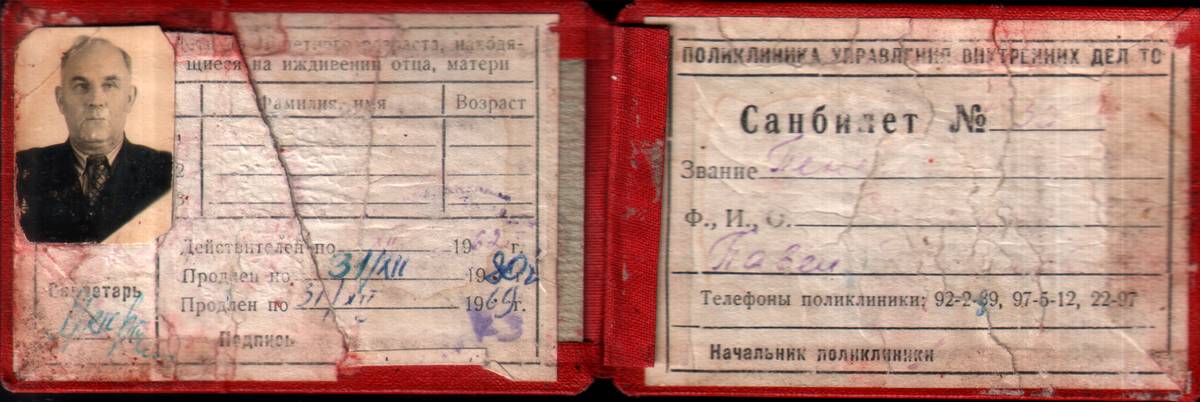 возраста, находя-
щиеся на иждивении отца, матери
Фамилия, имя Возраст
1
2
3
Действителен по 1962 г.
Продлен по 31/XII 19
Продлен по 31/XII 1969г.
Секретарь
Подпись
ПОЛИКЛИНИКА УПРАВЛЕНИЯ ВНУТРЕННИХ ДЕЛ ТО
Санбилет №
Звание
Ф., И., О.
Павел
Телефоны поликлиники: 92-2-89, 97-5-12, 22-97
Начальник поликлиники